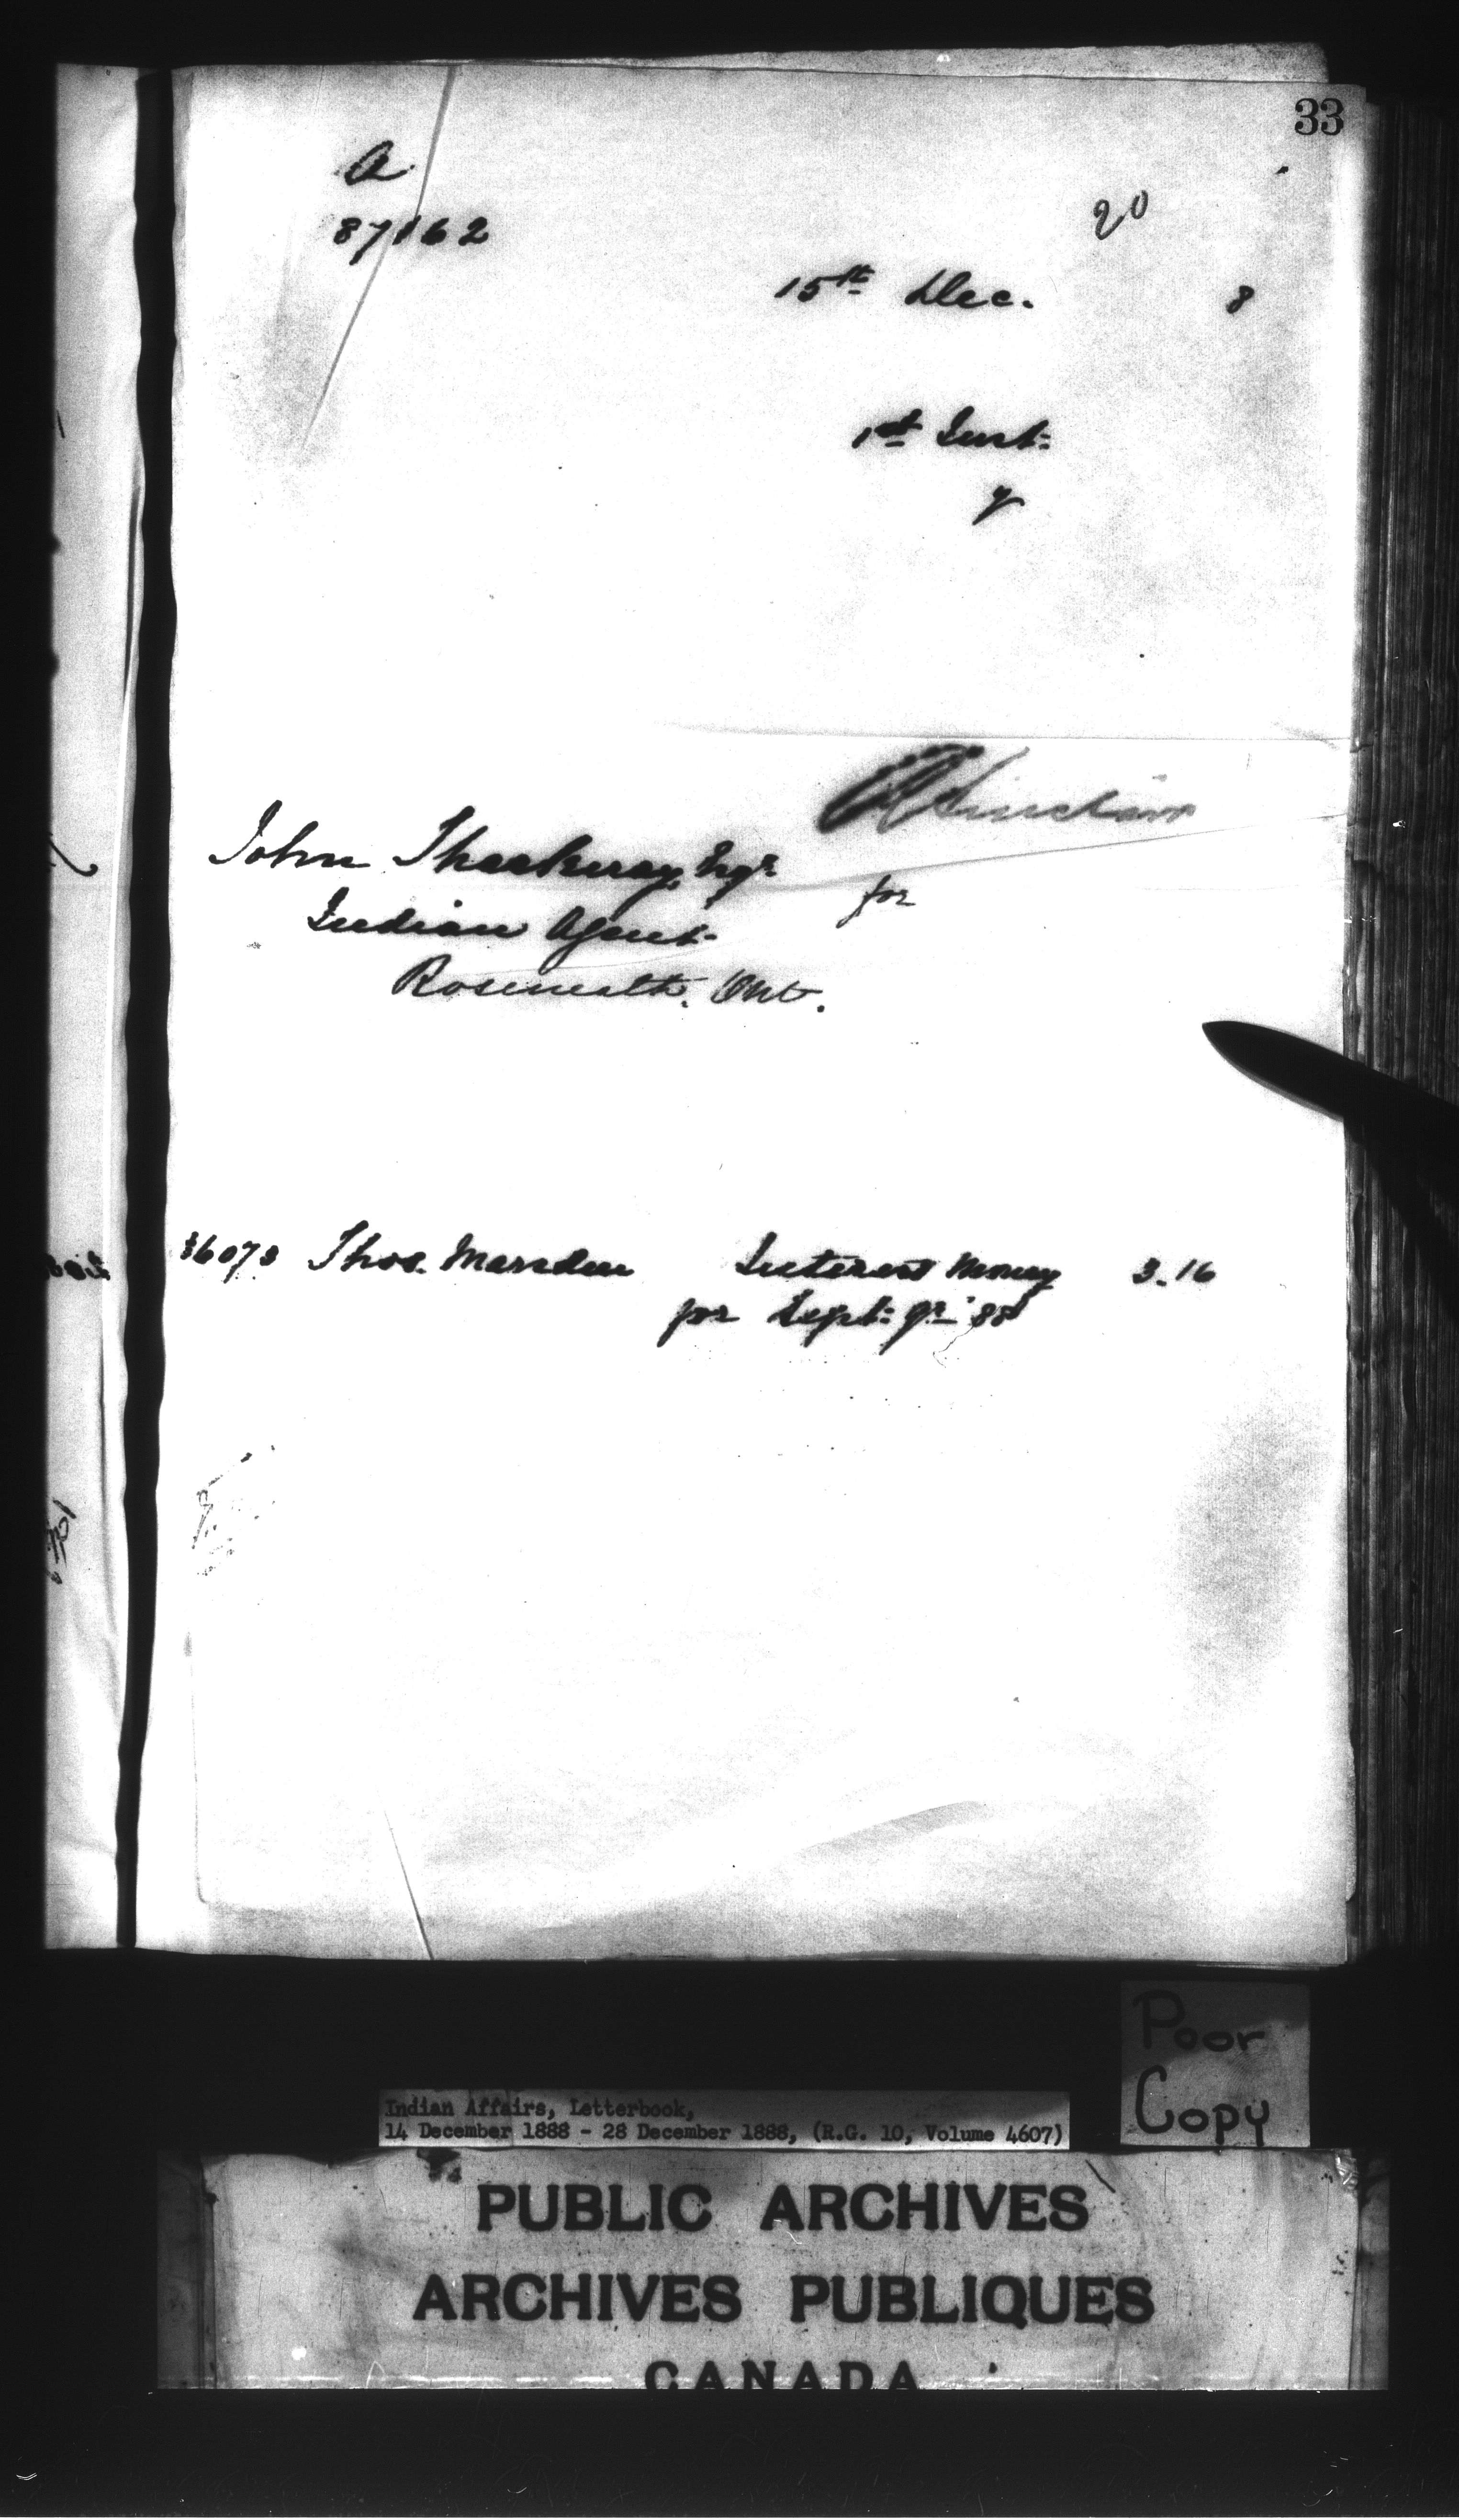 33
A
87162
20
15th Dec. 8
1st Inst:
y
R Sinclair
John Thackeray, Esqr
for
Indian Agent
Roseneath. Ont.
36073 Thos. Marsden Interest Money 3.16
for Sept: Qr '88
Poor
Copy
Indian Affairs, Letterbook,
14 December 1888 - 28 December 1888, (R.G. 10, Volume 4607)
PUBLIC ARCHIVES
ARCHIVES PUBLIQUES
CANADA